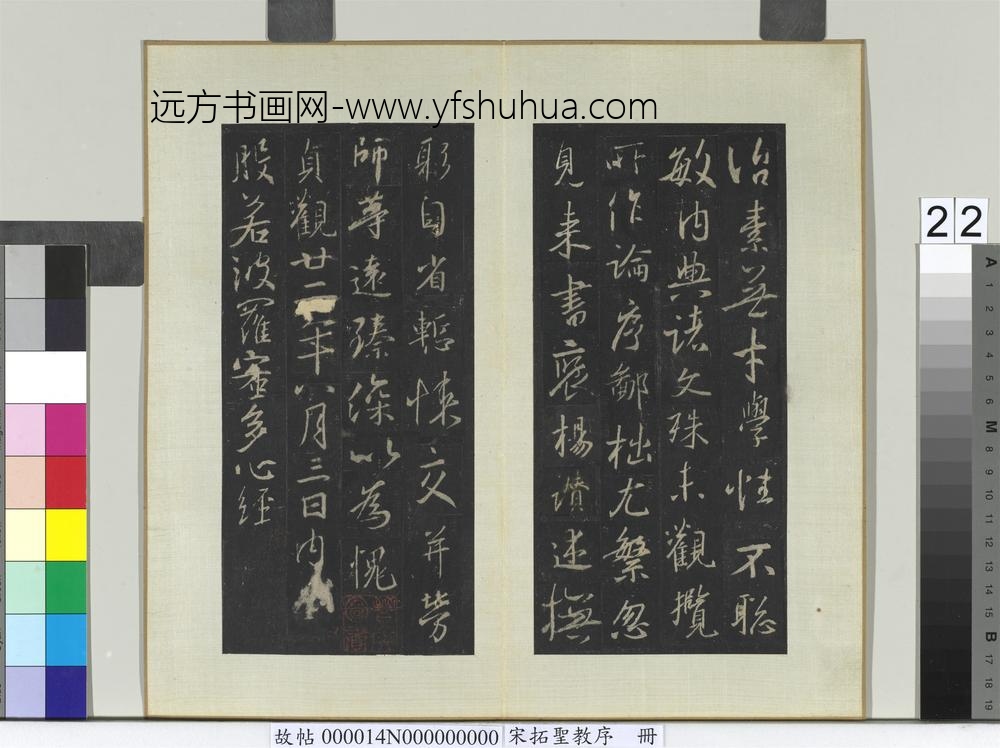 远方书画网-www.yfshuhua.com
治素無才學性不聪
敏内典諸文殊未觀攬
所作論序鄙拙尤繁忽
見来書褒揚讃述撫
躬自省慙悚交并勞
師等遠臻深以為愧
貞觀廿二年八月三日内
般若波羅蜜多心經
22
A
1
2
3
4
5
6
M
8
9
10
11
12
13
14
15
B
17
18
19
故帖 000014N000000000 宋拓聖教序 冊